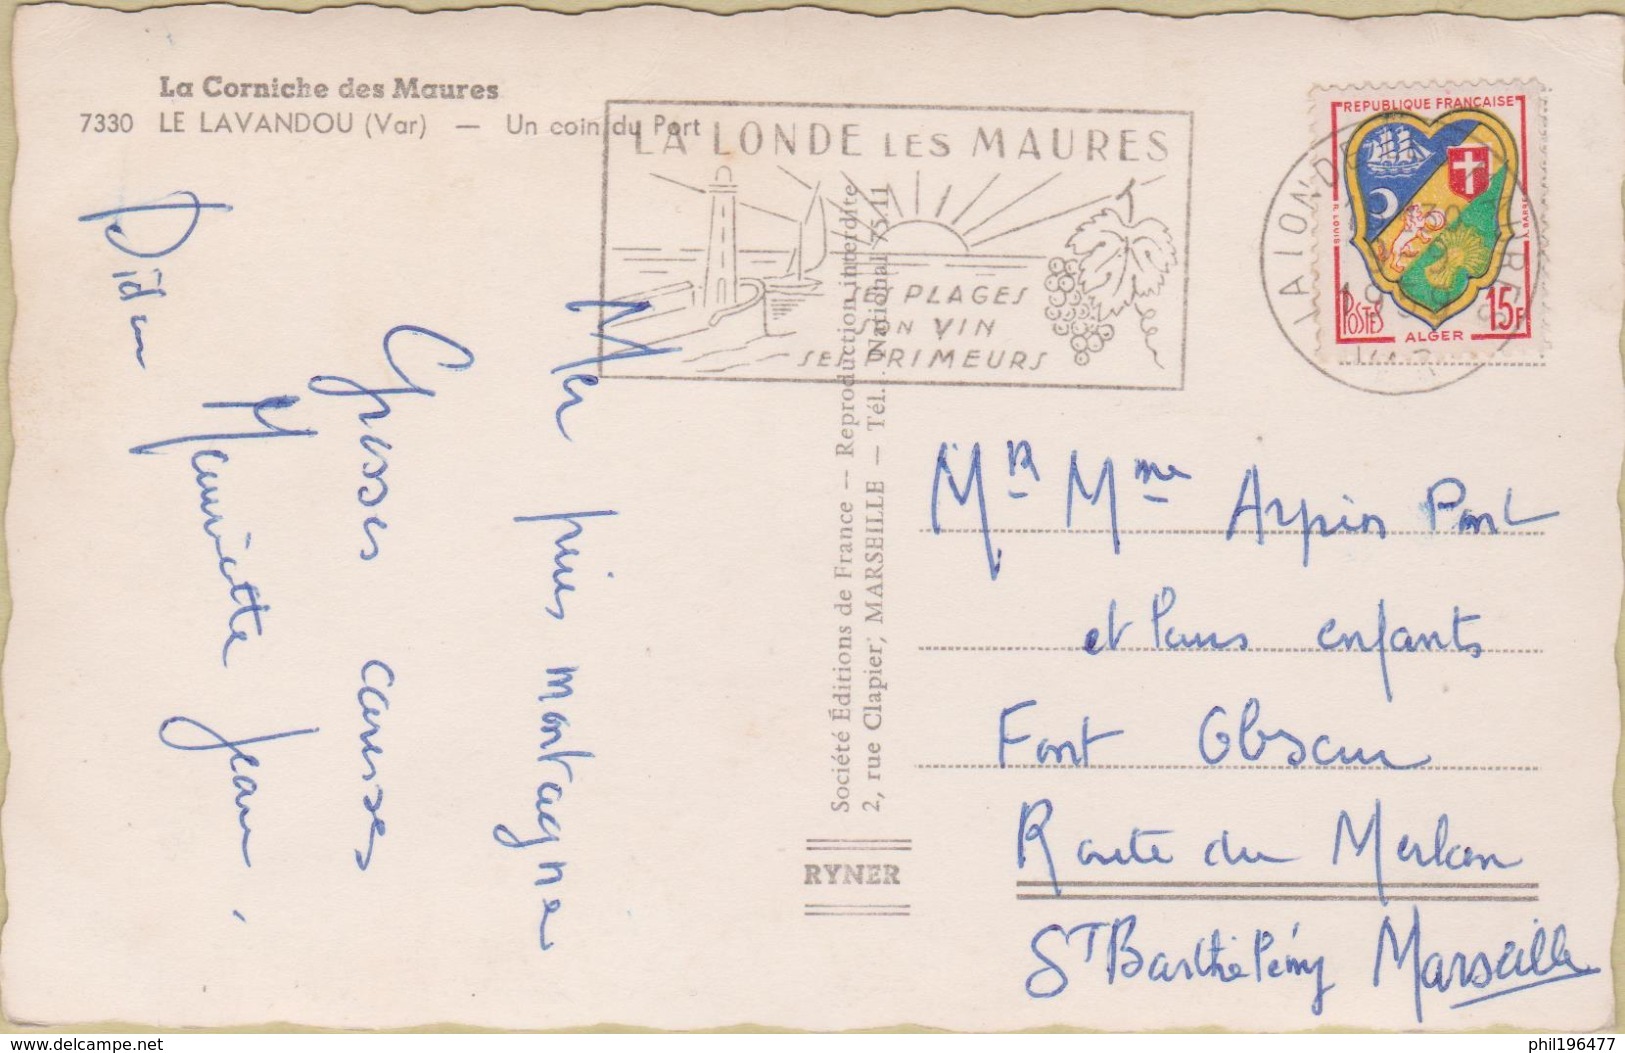 La Corniche des Maures
7330 LE LAVANDOU (Var) — Un coin du Port
LA LONDE LES MAURES
SES PLAGES
SON VIN
SES PRIMEURS
REPUBLIQUE FRANÇAISE
POSTES
ALGER
15F
Mer pins montagne
Grosses caresses
Mauricette Jean.
Société Éditions de France — Reproduction interdite
2, rue Clapier, MARSEILLE — Tél. : National 75.11
RYNER
Mr Mme Arpin Paul
et Leurs enfants
Font Obscur
Route du Merlan
St Barthélémy Marseille
delcampe.net
phil196477